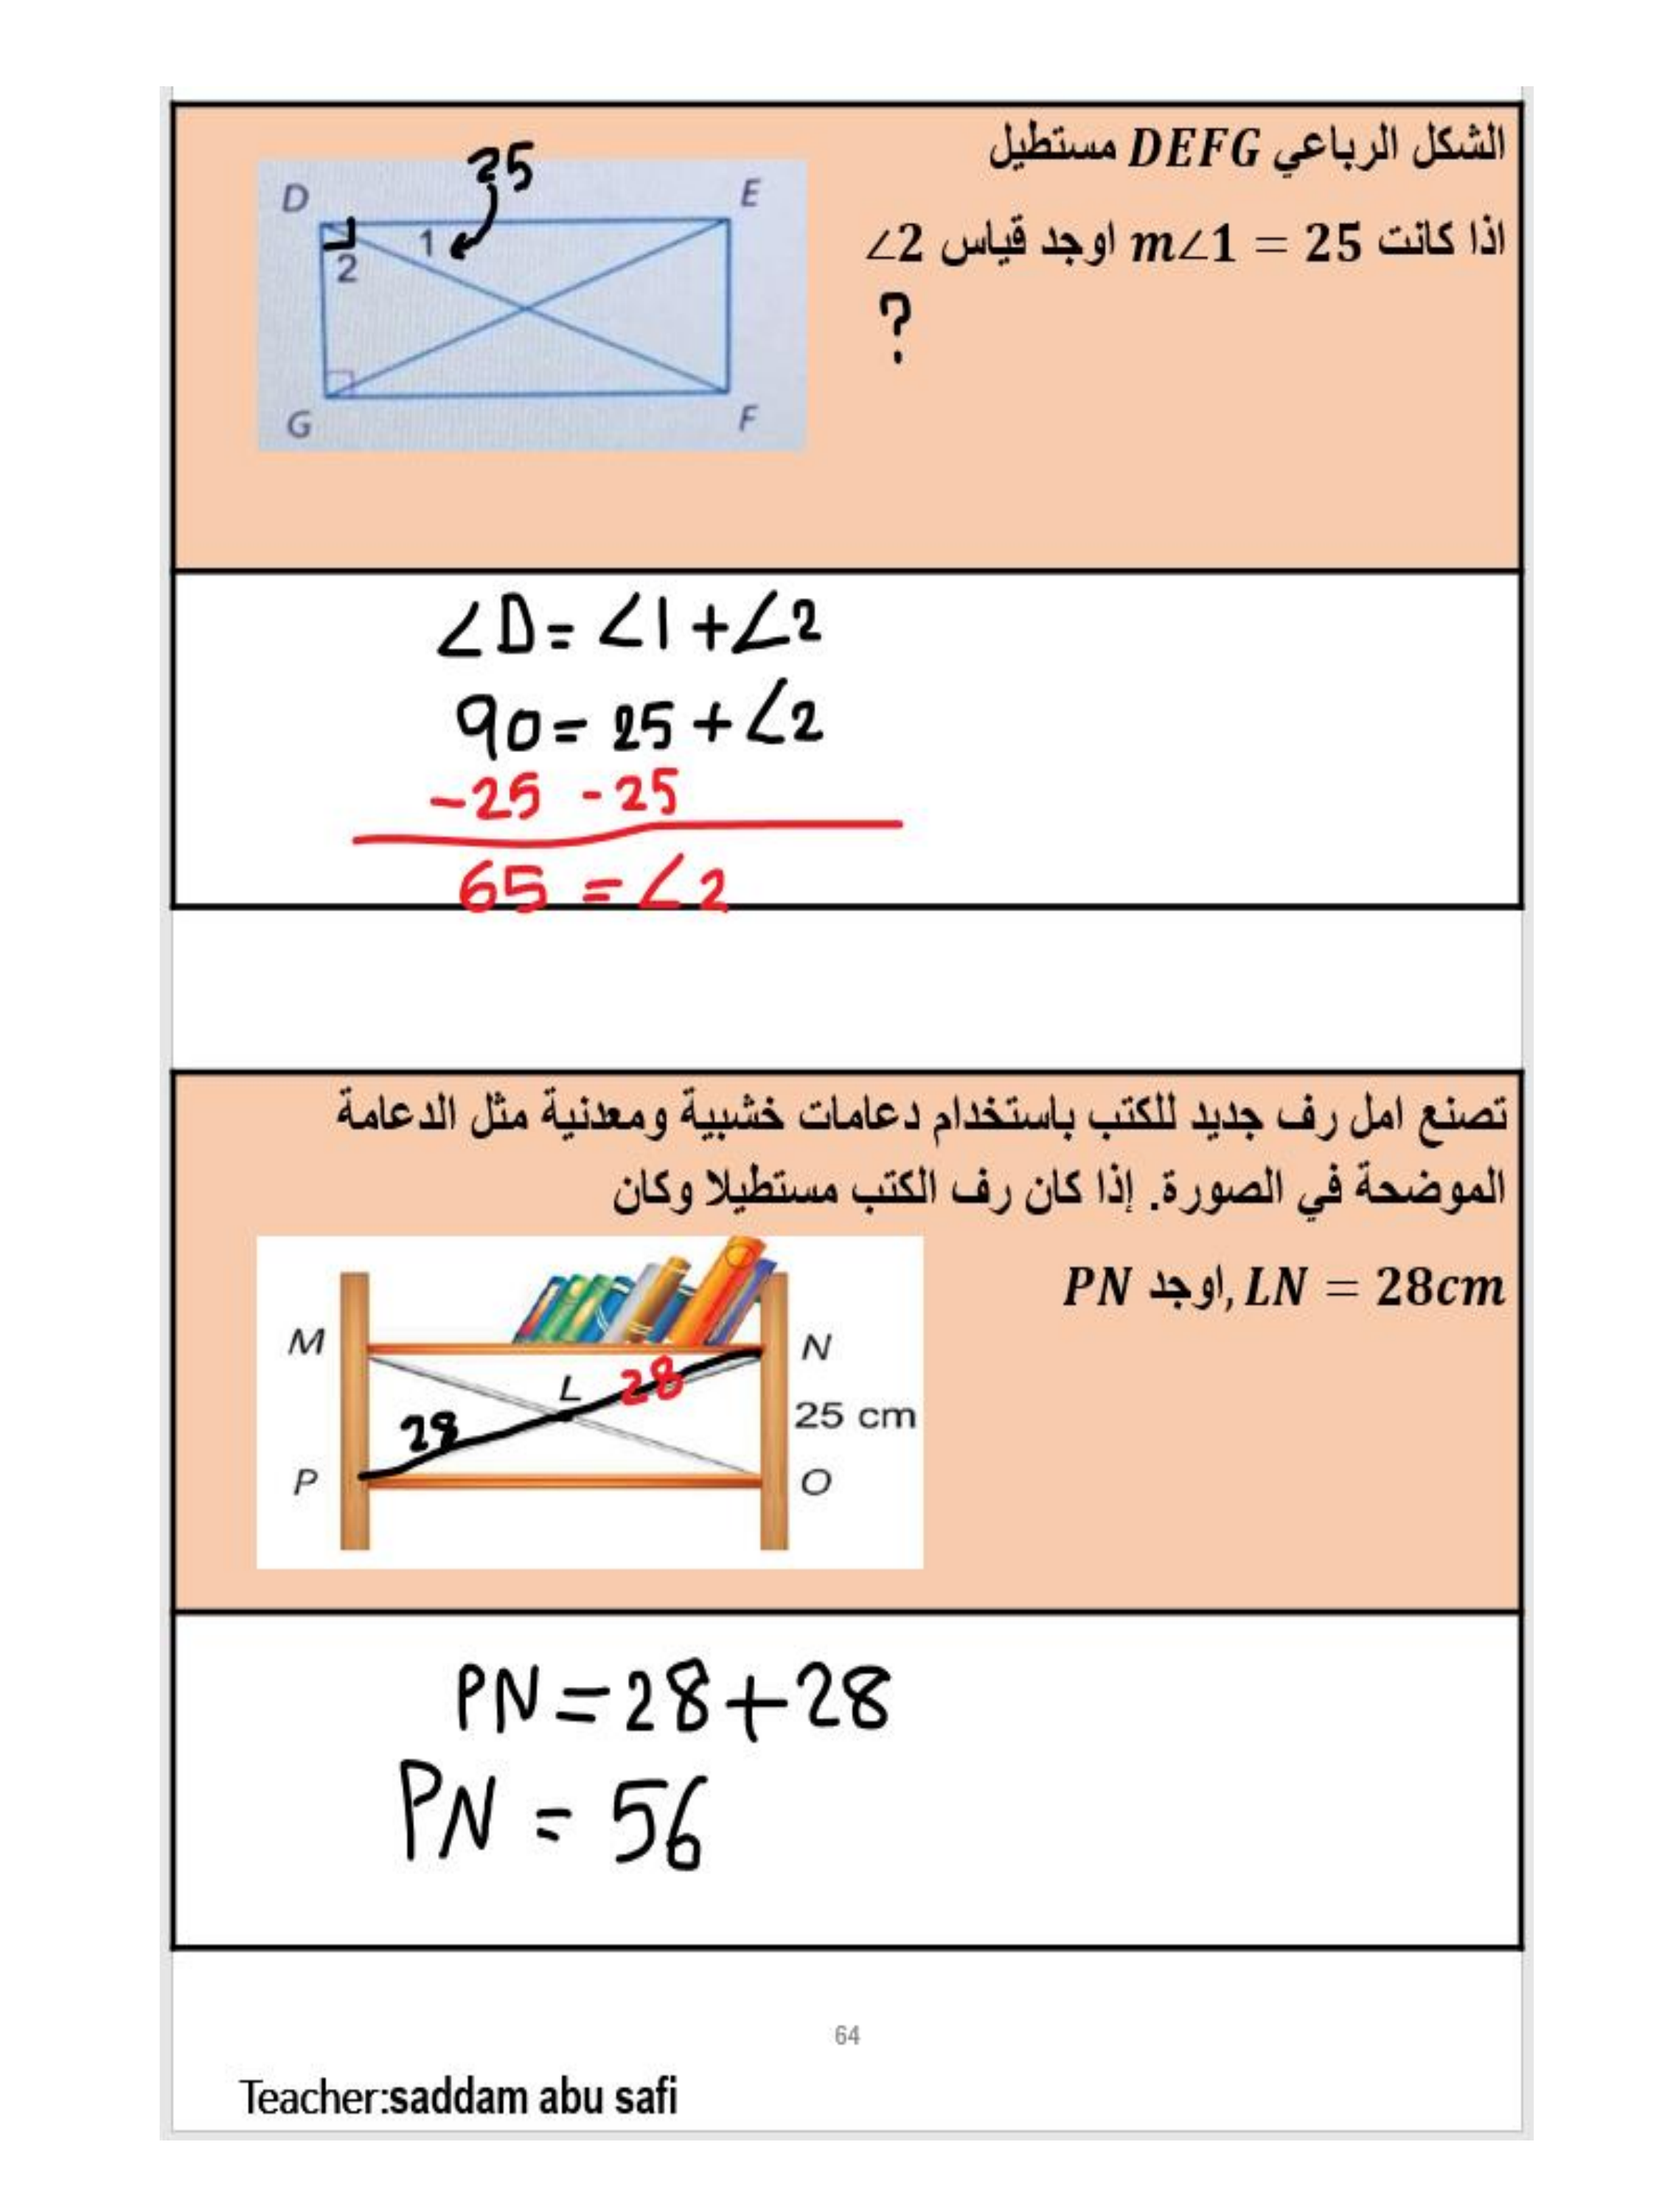 الشكل الرباعي DEFG مستطيل
اذا كانت m∠1 = 25 اوجد قياس ∠2
?
25
D
E
1
2
G
F
∠D= ∠1+∠2
90= 25+∠2
-25 -25
65 =∠2
تصنع امل رف جديد للكتب باستخدام دعامات خشبية ومعدنية مثل الدعامة
الموضحة في الصورة. إذا كان رف الكتب مستطيلا وكان
LN = 28cm ,اوجد PN
M
N
L
28
28
25 cm
P
O
PN=28+28
PN = 56
64
Teacher:saddam abu safi